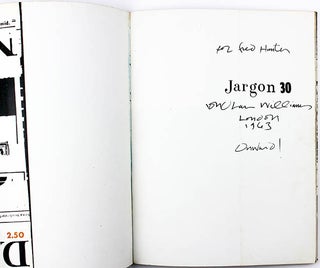 2.50
for Fred Hunter
Jargon 30
Jonathan Williams
London
1963
Onward!